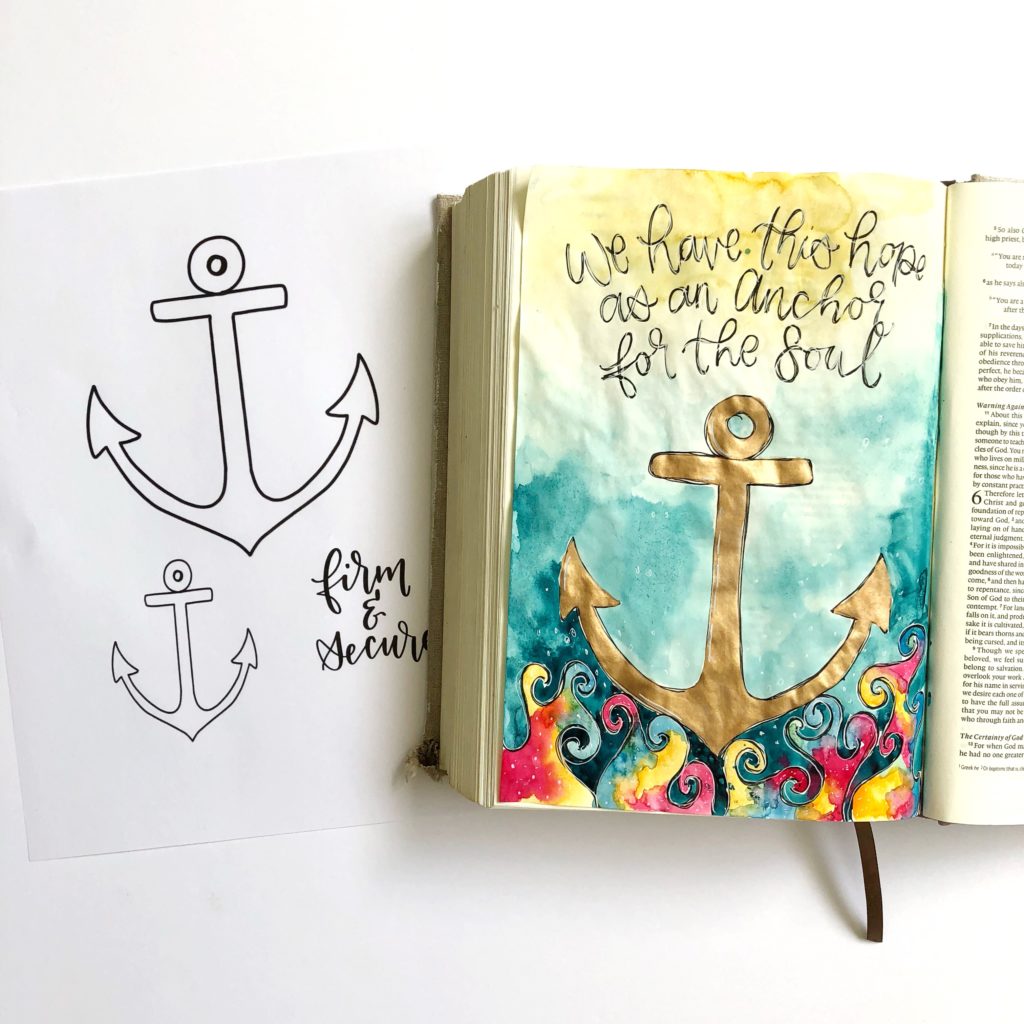 firm
&
secure
We have this hope
as an Anchor
for the Soul
⁵ So also C
high priest, b
"You are
today
⁶ as he says als
"You are a
after th
⁷ In the days
supplications,
able to save hi
of his reveren
obedience thro
perfect, he bec
who obey him,
after the order
Warning Again
¹¹ About this
explain, since y
though by this t
someone to teach
cles of God. You n
who lives on mil
ness, since he is a
for those who ha
by constant pract
6 Therefore let
Christ and g
foundation of rep
toward God, ² and
laying on of hand
eternal judgment.
⁴ For it is impossib
been enlightened,
and have shared in
goodness of the wo
come, ⁶ and then ha
to repentance, sinc
Son of God to thei
contempt. ⁷ For land
falls on it, and produ
sake it is cultivated,
if it bears thorns and
being cursed, and its
⁹ Though we spe
beloved, we feel su
belong to salvation.
overlook your work
for his name in servin
we desire each one of
to have the full assu
that you may not be
who through faith an
The Certainty of God
¹³ For when God m
he had no one greater